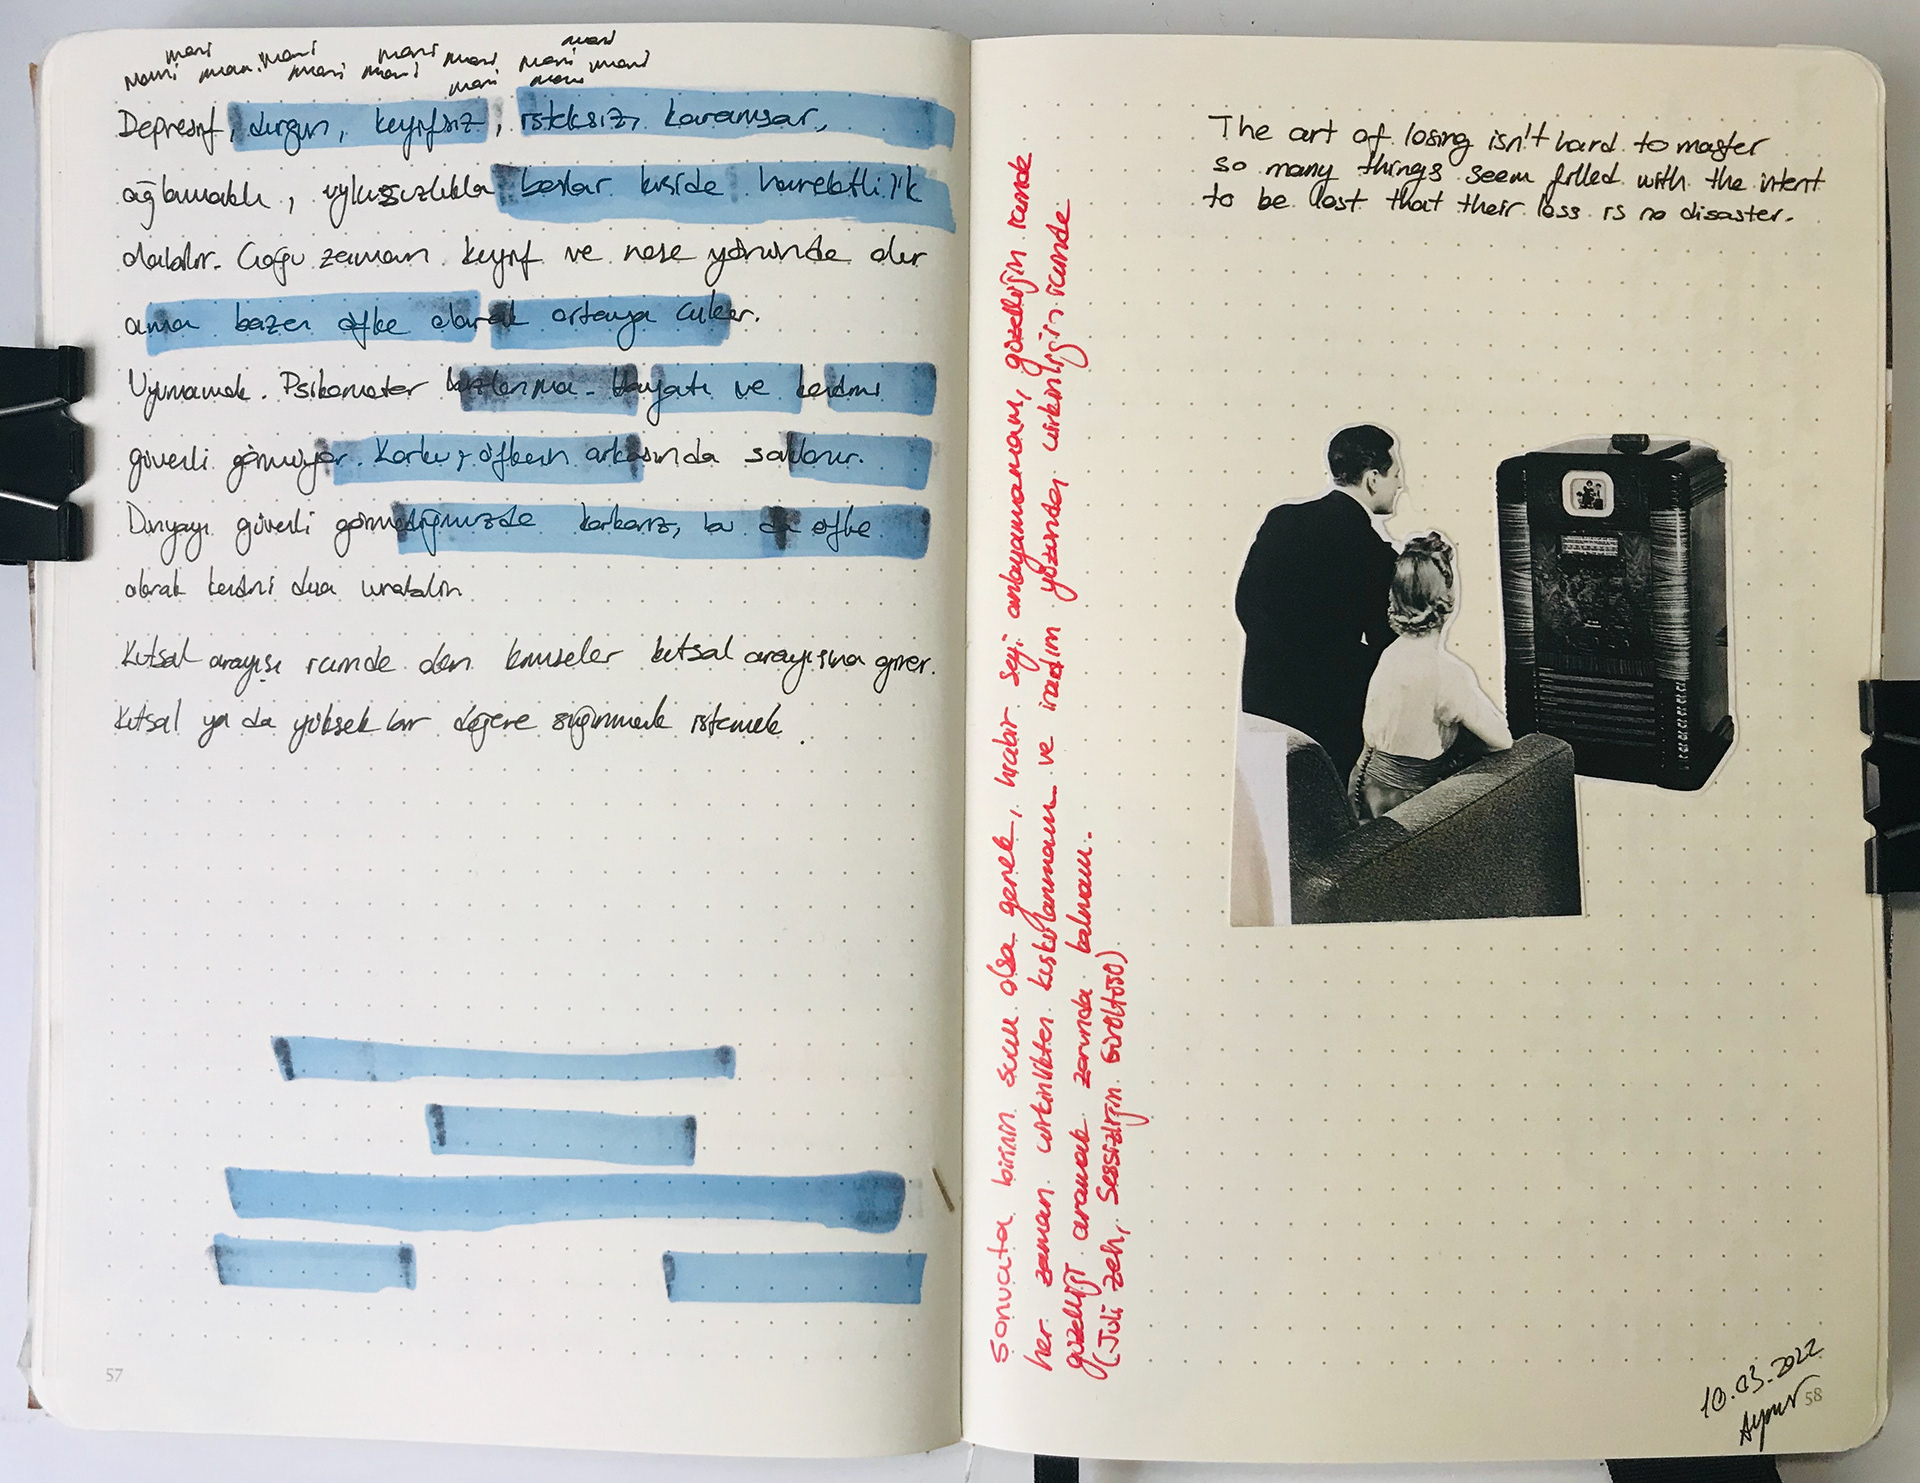 mani mani mani mani mani
mani mani mani mani mani mani mani
mani mani
Depresif, durgun, keyifsiz, isteksiz, karamsar,
ağlamaklı, uykusuzlukla başlar kişide hareketlilik
olabilir. Çoğu zaman keyif ve neşe yönünde olur
ama bazen öfke olarak ortaya çıkar.
Uyumamak. Psikomotor hızlanma. Hayatı ve kendini
güvenli görmüyor. Korku, öfkenin arkasında saklanır.
Dünyayı güvenli görmediğimizde korkarız, bu da öfke
olarak kendini dışa vurabilir.
Kutsal arayışı içinde olan kimseler kutsal arayışına girer.
Kutsal ya da yüksek bir değere sığınmak istemek.
57
Sonuçta birinin suçu olsa gerek, hiçbir şeyi anlayamamam, güzelliğin içinde
her zaman çirkinlikten kuşkulanmam ve inadım yüzünden çirkinliğin içinde
güzelliği aramak zorunda kalmam.
(Juli Zeh, Sessizliğin Gürültüsü)
The art of losing isn't hard to master
so many things seem filled with the intent
to be lost that their loss is no disaster.
10.03.2022
58